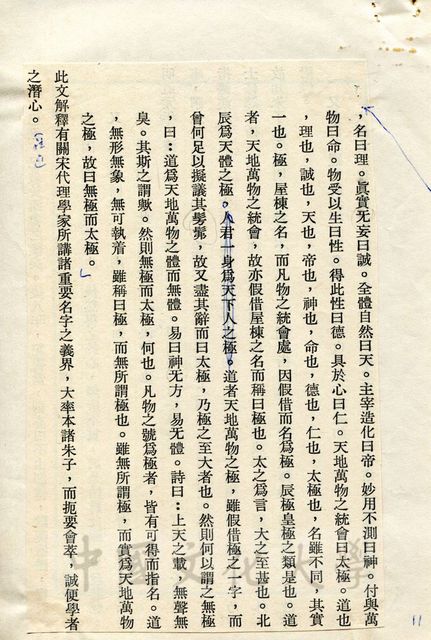 ，名曰理。眞實无妄曰誠。全體自然曰天。主宰造化曰帝。妙用不測曰神。付與萬
物曰命。物受以生曰性。得此性曰德。具於心曰仁。天地萬物之統會曰太極。道也
，理也，誠也，天也，帝也，神也，命也，德也，仁也，太極也，名雖不同，其實
一也。極，屋棟之名，而凡物之統會處，因假借而名爲極。辰極皇極之類是也。道
者，天地萬物之統會，故亦假借屋棟之名而稱曰極也。太之爲言，大之至甚也。北
辰爲天體之極。人君一身爲天下人之極。道者天地萬物之極，雖假借極之一字，而
曾何足以擬議其髣髴，故又盡其辭而曰太極，乃極之至大者也。然則何以謂之無極
，曰：道爲天地萬物之體而無體。易曰神无方，易无體。詩曰：上天之載，無聲無
臭。其斯之謂歟。然則無極而太極，何也。凡物之號爲極者，皆有可得而指名。道
，無形無象，無可執着，雖稱曰極，而無所謂極也。雖無所謂極，而實爲天地萬物
之極，故曰無極而太極。
此文解釋有關宋代理學家所講諸重要名字之義界，大率本諸朱子，而扼要會萃，誠便學者
之潛心。
中國文化大學
11